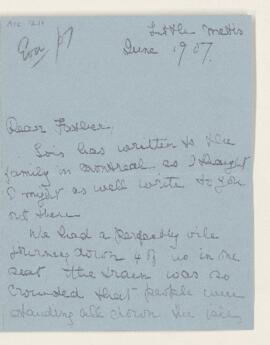 Little Metis
June 1907.
Dear Father,
Lois has written to the
family in Montreal so I thought
I might as well write to you
out there
We had a perfectly vile
journey down 4 of us in one
seat the train was so
crowded that people were
standing all down the